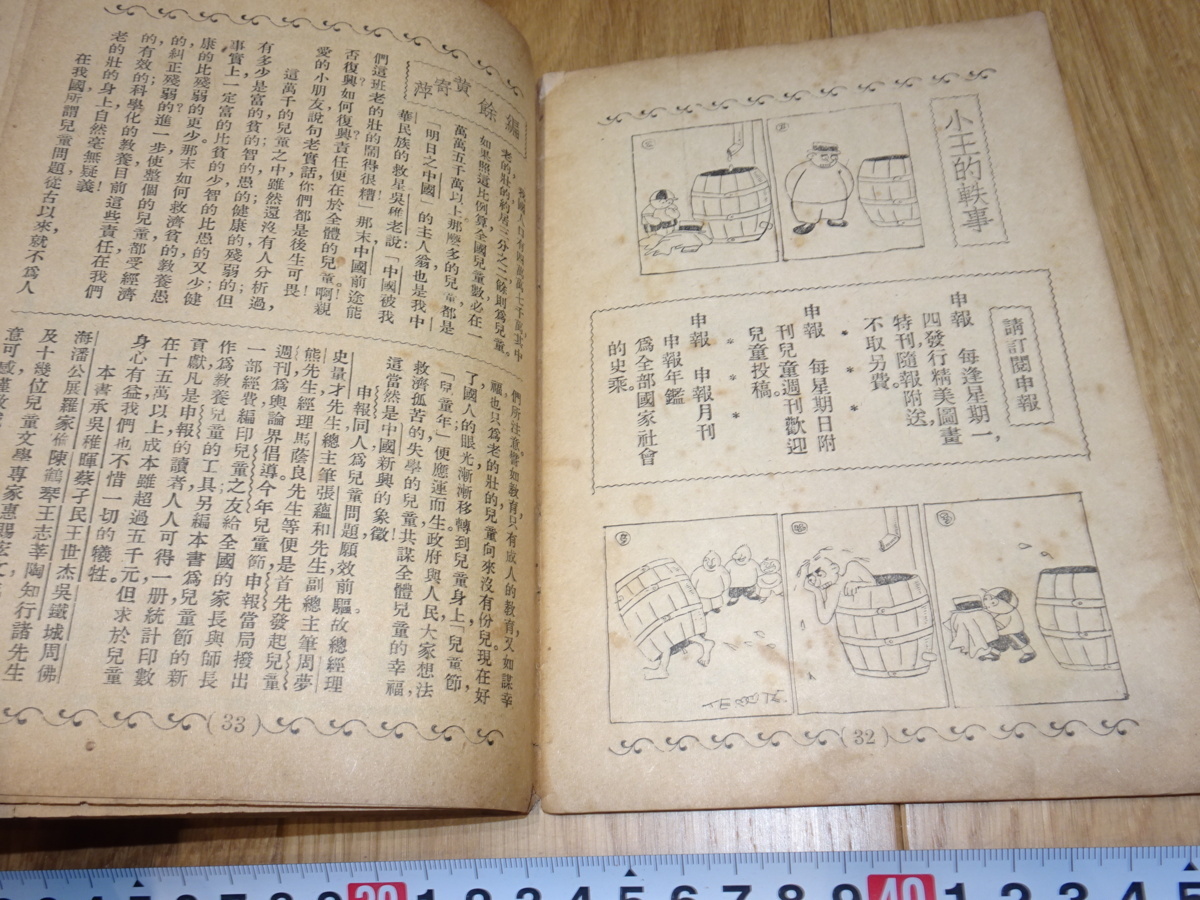 小王的軼事
請訂閱申報
申報 每逢星期一,
四發行精美圖畫
特刊隨報附送,
不取另費。
申報 每星期日附
刊兒童週刊歡迎
兒童投稿。
申報 申報月刊
申報年鑑
為全部國家社會
的史乘。
(32)
編餘
黃寄萍
老的壯的約居三分之二餘則為兒童。
如果照這比例算全國兒童數必在
萬萬五千萬以上那麼多的兒童都是
「明日之中國」的主人翁也是我中
華民族的救星吳稚老說:「中國被我
們這班老的壯的鬧得很糟」那末中國前途能
否復興?如何復興?責任便在於全體的兒童。啊!親
愛的小朋友說句老實話你們都是後生可畏
這萬千的兒童之中雖然還沒有人分析過,
有多少是富的貧的智的愚的健康的殘弱的;但
事實上一定富的比貧的少智的比愚的又少健
康的比殘弱的更少那末如何救濟貧的教養愚
的糾正殘弱的?進一步使整個的兒童都受經濟
的有效的科學化的教養目前這些責任在我們
老的壯的身上自然毫無疑義!
在我國所謂兒童問題從古以來就不為人
們所注意譬如教育只有成人的教育又如謀幸
福也只為老的壯的兒童向來沒有份兒現在好
了國人的眼光漸漸移轉到兒童身上「兒童節
「兒童年」便應運而生政府與人民大家想法
救濟孤苦的失學的兒童共謀全體兒童的幸福,
這當然是中國新興的象徵!
申報同人為兒童問題願效前驅。故總經理
史量才先生總主筆張蘊和先生副總主筆周夢
熊先生經理馬蔭良先生等便是首先發起兒童
週刊為輿論界倡導今年兒童節申報當局撥出
一部經費編印兒童之友給全國的家長與師長
作為教養兒童的工具另編本書為兒童節的新
貢獻凡是申報的讀者人人可得一册統計印數
在十五萬以上成本雖超過五千元但求於兒童
身心有益我們也不惜一切的犧牲。
本書承吳稚暉蔡孑民王世杰吳鐵城周佛
海潘公展羅家倫陳鶴琴王志莘陶知行諸先生
及十幾位兒童文學專家惠賜宏文,
(33)